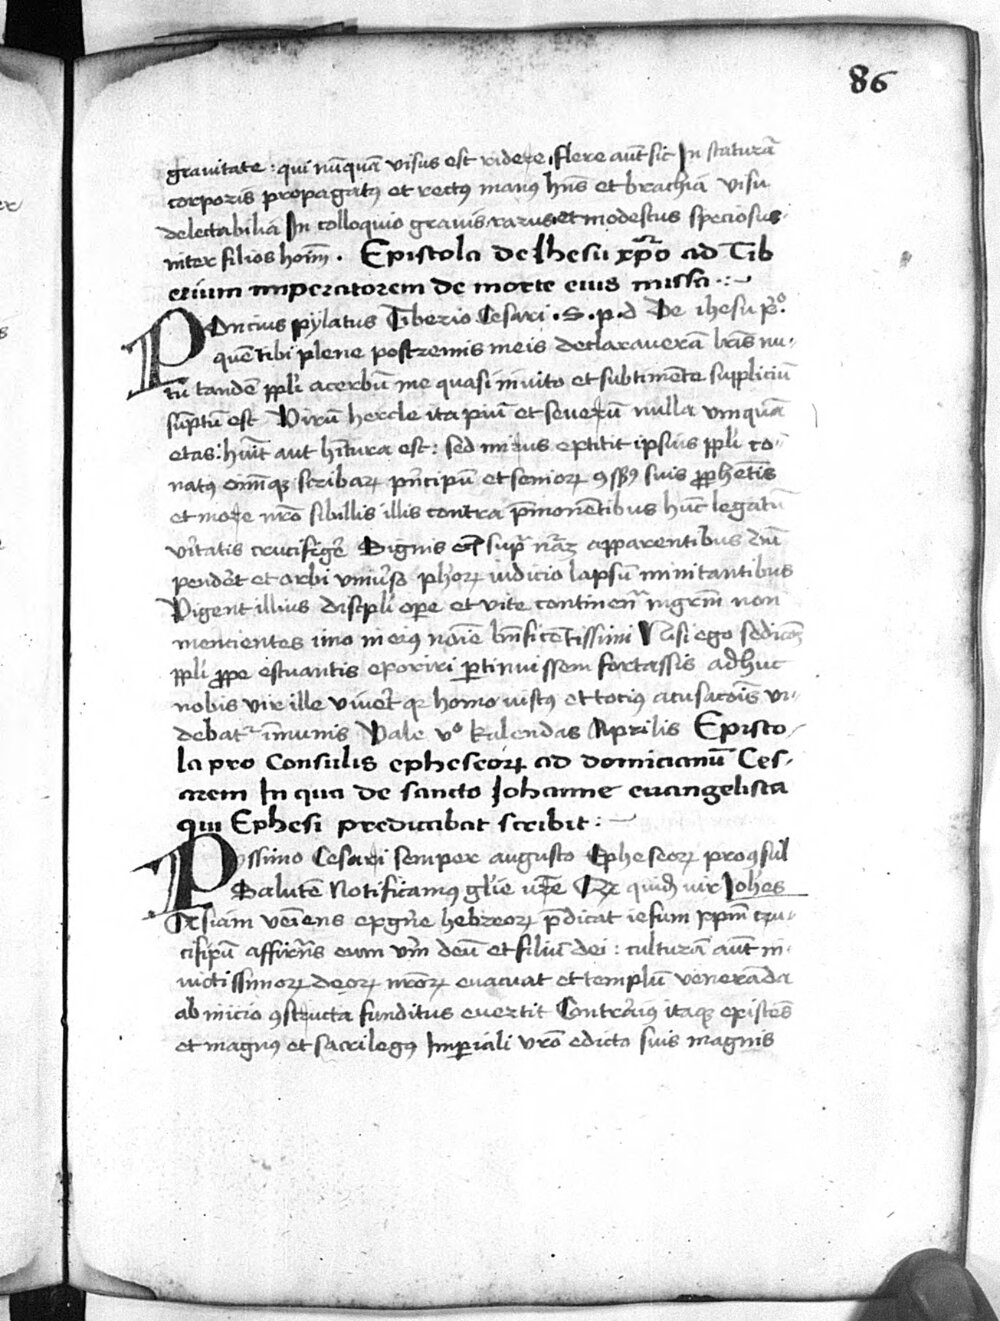 86
grauitate : qui nūquā visus est ridere, flere aūt sic In staturā
corporis propagatꝰ et rectus manꝰ hn̄s et brachia visu
delectabilia In colloquio grauis rarus et modestus speciosus
inter filios hoīm . Epistola de Ihesu xp̄o ad Tib
erium imperatorem de morte eius missa
Poncius pylatus Tiberio Cesari . S . p . d De ihesu xp̄o
quē tibi plene postremis meis declaraueram līris nu
tu tandē ppl̄i acerbū me quasi inuito et subtimēte suppliciū
sūptū est Virū hercle ita piū et seuerū nulla vmquā
etas : huīt aut hītura est : sed mirus extitit ipsius ppl̄i co
natꝰ oīmqꝫ scribaꝝ pn̄cipū et senioꝝ suis ꝓphetis
et more nr̄o sibillis illis contra p̄monētibus hūc legatū
vītatis crucifigē Signis supra apparentibus dū
pendēt et orbi vniūso ph̄oꝝ iudicio lapsū minitantibus
Vigent illius discipl̄i opere et vite continen̄ mgr̄m non
mencientes imo in eiꝰ noīe bn̄ficētissimi Nisi ego sedicōꝫ
ppl̄i ꝓpe estuantis exoriri ꝑtinuissem fortassis adhuc
nobis vir ille viuet̄ qꝫ homo iustꝰ et totiꝰ acusacōis vi
debat immunis Vale vº kalendas Aprilis Episto
la pro Consulis epheseoꝝ ad domicianū Ces
arem In qua de sancto Iohanne euangelista
qui Ephesi predicabat scribit :
Pissimo Cesari semper augusto Epheseoꝝ proꝯsul
Salutē Notificamꝰ gl̄ie quidā vir Ioh̄es
Asiam veīens ex gn̄e hebreoꝝ p̄dicat iesum xp̄m cru
cifixū affirm̄s eum vm̄ deū et filiū dei : culturā aūt in
uictissimoꝝ deoꝝ nr̄oꝝ euacuat et templū venerāda
ab inicio ꝯstructa funditus euertit Contrariꝰ itaqꝫ existēs
et magnꝰ et sacrilegꝰ Imperiali vr̄o edicto suis magnis